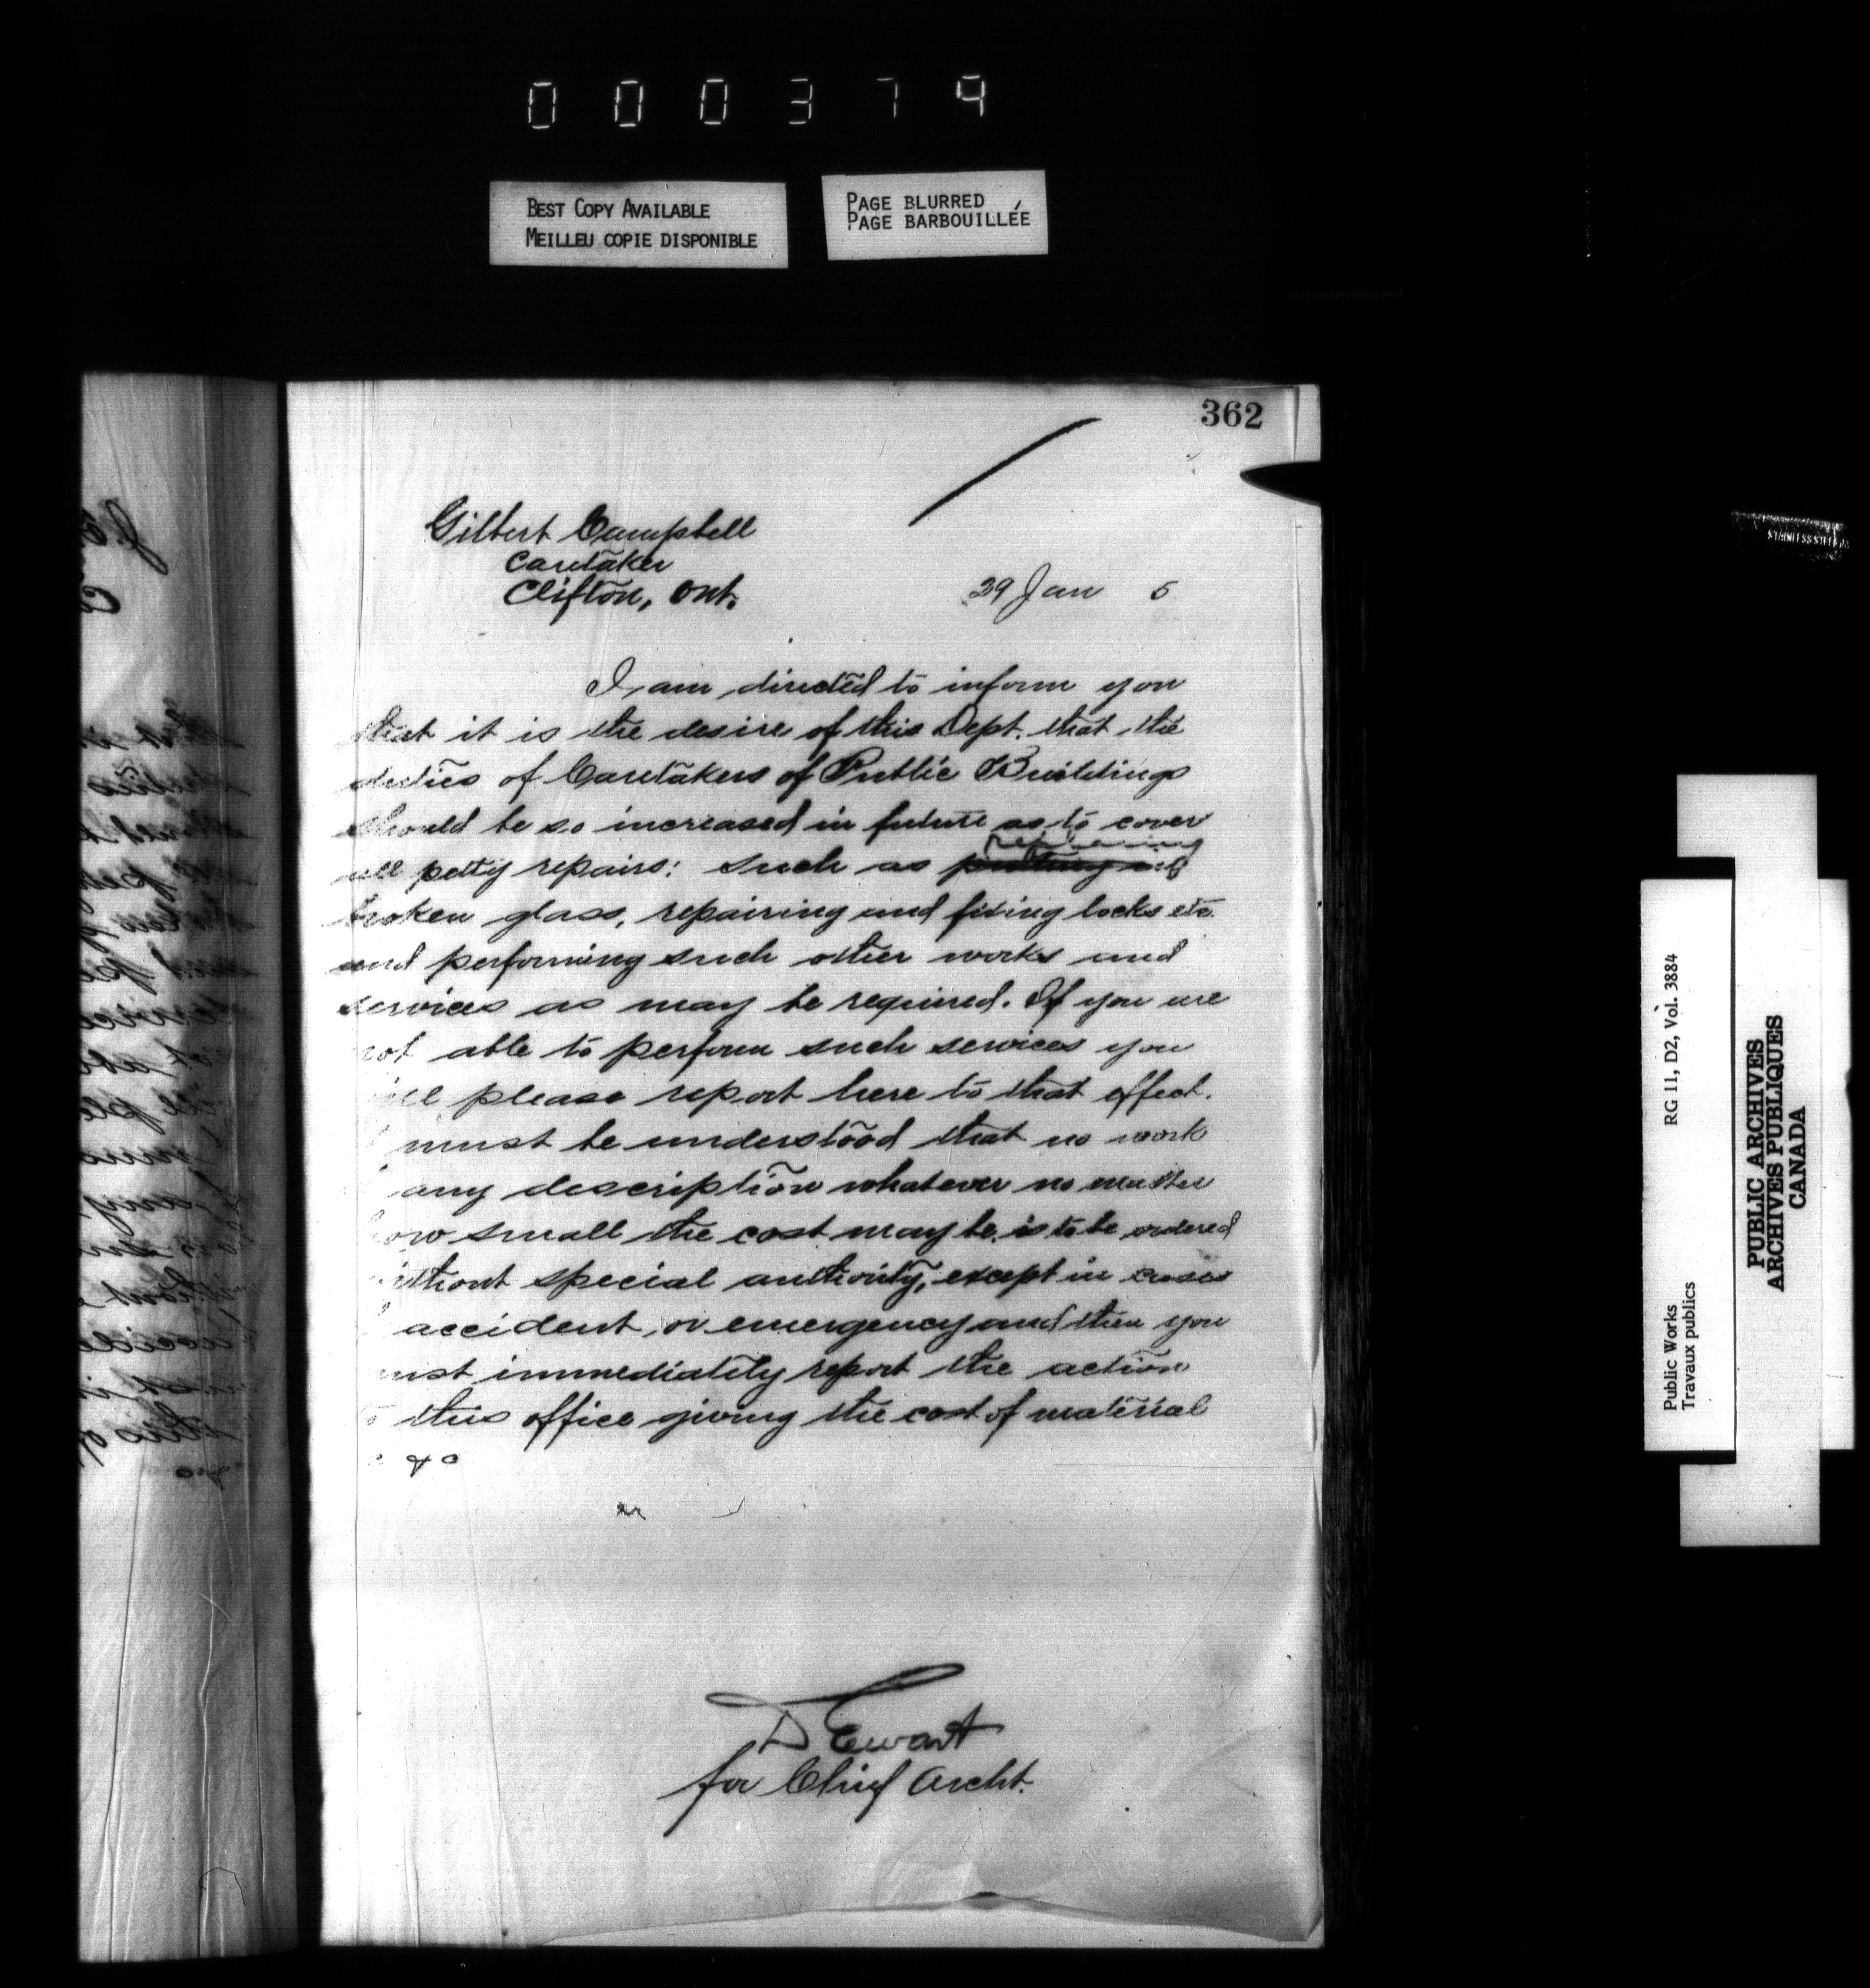 0 0 0 3 7 9
BEST COPY AVAILABLE
MEILLEU COPIE DISPONIBLE
PAGE BLURRED
PAGE BARBOUILLÉE
362
Gilbert Campbell
Caretaker
Clifton, Ont.
29 Jan 5
I am directed to inform you
that it is the desire of this Dept. that the
duties of Caretakers of Public Buildings
should be so increased in future as to cover
replacing
all petty repairs: such as putting in
broken glass, repairing and fixing locks etc.
and performing such other works and
services as may be required. If you are
not able to perform such services you
ill please report here to that effect.
must be understood that no work
any description whatever no matter
how small the cost may be, is to be ordered
ithout special authority, except in cases
accident, or emergency and then you
ust immediately report the action
to this office giving the cost of material
&c
D Ewart
for Chief Archt.
RG 11, D2, Vol. 3884
Public Works
Travaux publics
PUBLIC ARCHIVES
ARCHIVES PUBLIQUES
CANADA